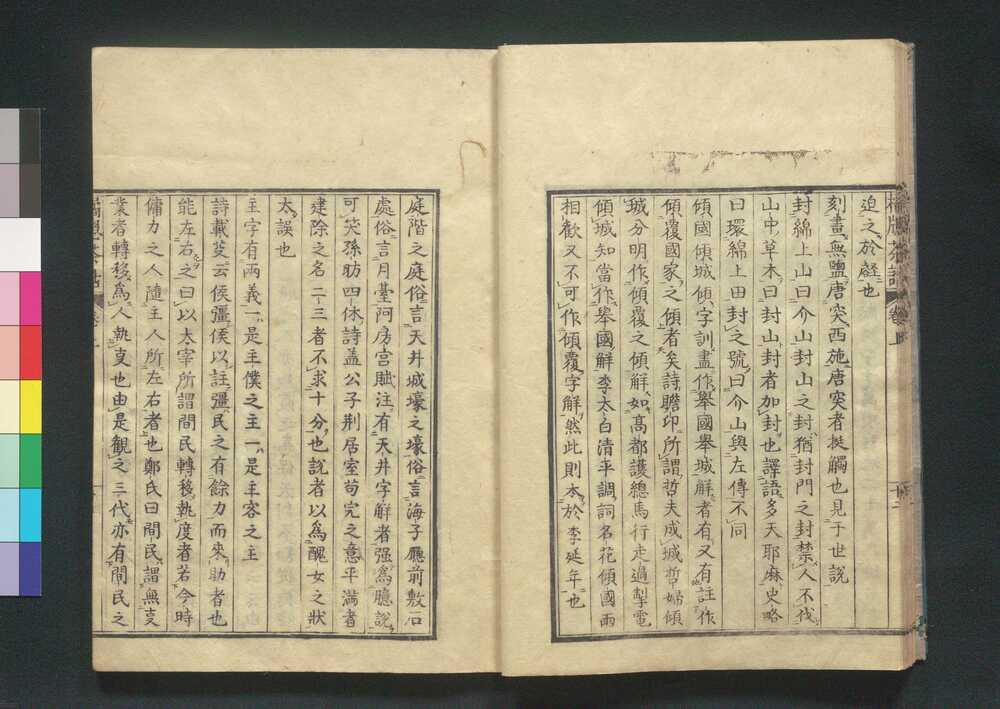 橘牕茶話 卷上
迫之於礙也
刻畫無鹽唐突西施唐突者挺觸也見于世說
封綿上山曰介山封山之封猶封門之封禁人不伐
山中草木曰封山封者加封也譯語多天耶麻史略
曰環綿上田封之號曰介山與左傳不同
傾國傾城傾字訓盡作舉國舉城解者有又有註作
傾覆國家之傾者矣詩瞻卬所謂哲夫成城哲婦傾
城分明作傾覆之傾解如高都護總馬行走過掣電
傾城知當作舉國解李太白清平調詞名花傾國兩
相歡又不可作傾覆字解然此則本於李延年也
庭階之庭俗言天井城壕之壕俗言海子廳前敷石
處俗言月臺阿房宮賦注有天井字解者强為臆說
可笑孫昉四休詩蓋公子荆居室苟完之意平滿者
建除之名二三者不求十分也說者以為醜女之狀
太誤也
主字有兩義一是主僕之主一是主客之主
詩載芟云侯彊侯以註彊民之有餘力而來助者也
能左右之曰以太宰所謂間民轉移執度者若今時
傭力之人隨主人所左右者也鄭氏曰間民謂無叓
業者轉移為人執叓也由是觀之三代亦有間民之